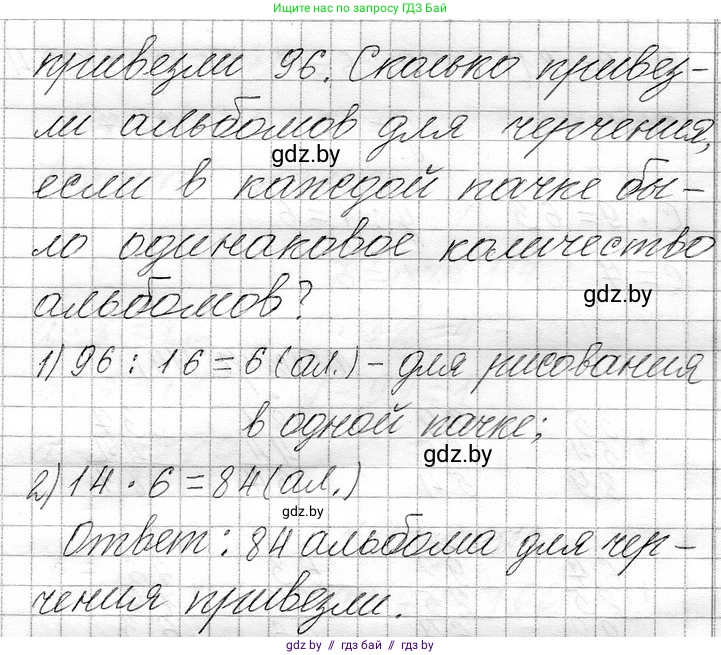 Ищите нас по запросу ГДЗ Бай
привезли 96. Сколько привез-
ли альбомов для черчения,
gdz.by
если в каждой пачке бы-
ло одинаковое количество
альбомов?
gdz.by
1) 96 : 16 = 6 (ал.) - для рисования
в одной пачке;
gdz.by
2) 14 · 6 = 84 (ал.)
gdz.by
Ответ: 84 альбома для чер-
чения привезли.
gdz.by // гдз бай // гдз.бел